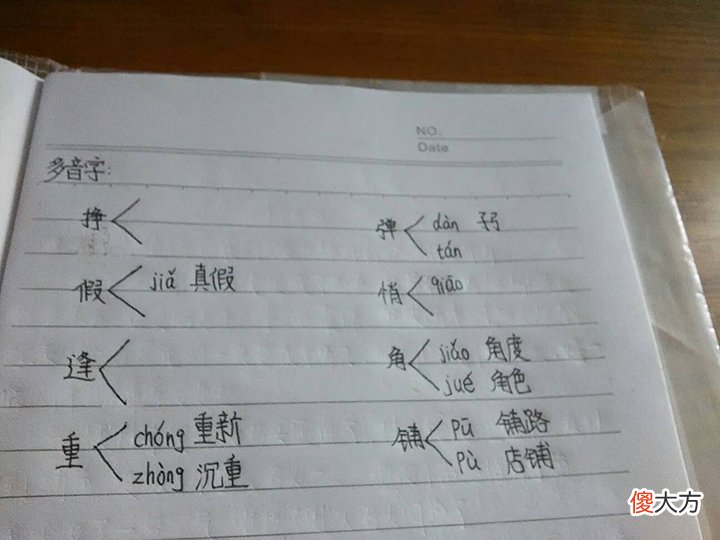 NO.
Date
多音字:
挣
假 jiǎ 真假
逢
重 chóng 重新
zhòng 沉重
弹 dàn
tán
悄 qiāo
角 jiǎo 角度
jué 角色
铺 pū 铺路
pù 店铺
傻大方